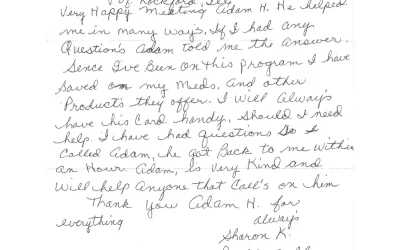 Rockford, Ill
Very Happy Meeting Adam H. He helped
me in many ways. If I had any
Question's Adam told me the answer.
Sence I've Been on this program I have
Saved on my Meds, And other
Products they offer. I Will Always
have his Card handy, should I need
help. I have had questions So I
Called Adam, he got Back to me within
an Hour. Adam, is Very Kind and
Will help Anyone that Call's on him
Thank You Adam H. for
everything
always
Sharon K.